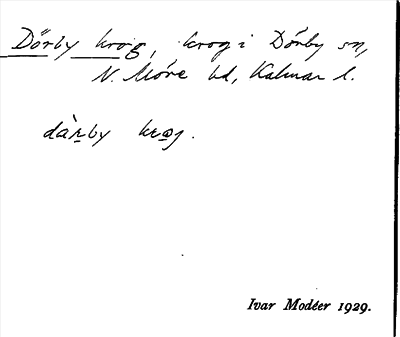 Dörby krog, krog i Dörby sn,
N. Möre hd, Kalmar l.
dàṟby kro̲g.
Ivar Modéer 1929.